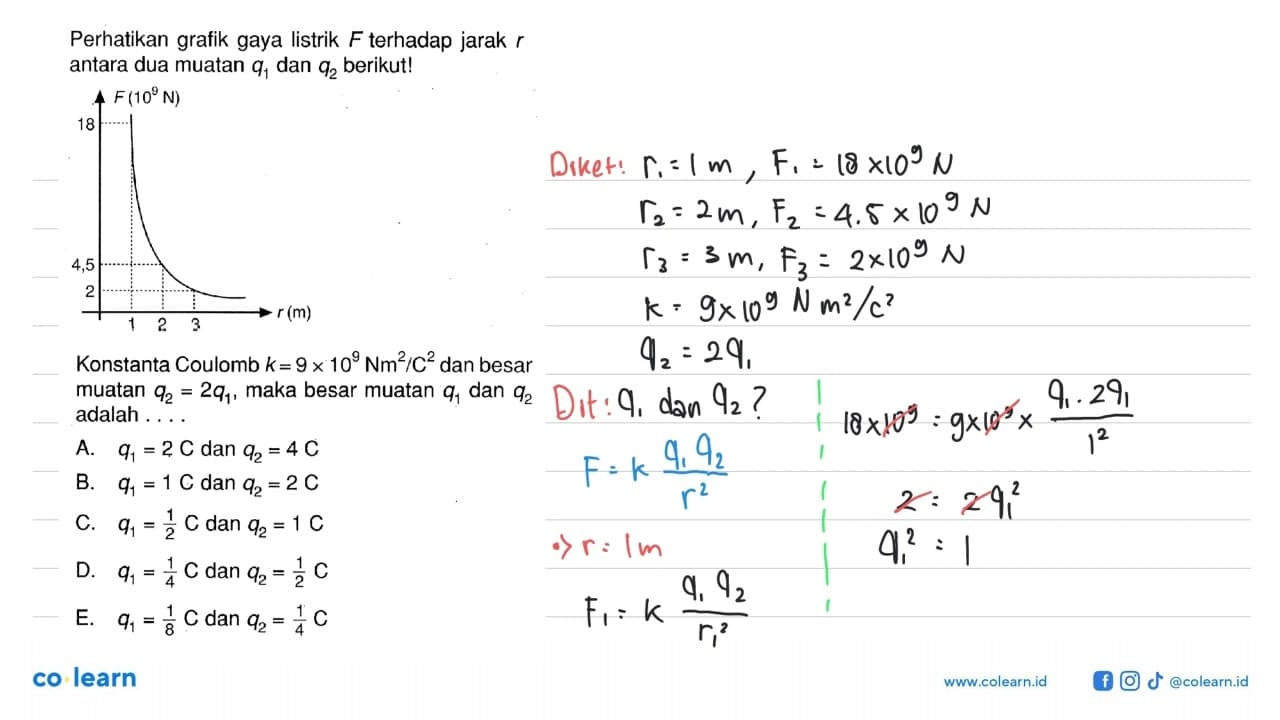 Perhatikan grafik gaya listrik F terhadap jarak r
antara dua muatan q₁ dan q₂ berikut!
F (10⁹ N)
18
4,5
2
1 2 3
r (m)
Konstanta Coulomb k = 9 × 10⁹ Nm²/C² dan besar
muatan q₂ = 2q₁, maka besar muatan q₁ dan q₂
adalah . . . .
A. q₁ = 2 C dan q₂ = 4 C
B. q₁ = 1 C dan q₂ = 2 C
C. q₁ = 1/2 C dan q₂ = 1 C
D. q₁ = 1/4 C dan q₂ = 1/2 C
E. q₁ = 1/8 C dan q₂ = 1/4 C
Diket: r₁ = 1 m, F₁ = 18 × 10⁹ N
r₂ = 2 m, F₂ = 4.5 × 10⁹ N
r₃ = 3 m, F₃ = 2 × 10⁹ N
k = 9 × 10⁹ N m²/c²
q₂ = 2q₁
Dit: q₁ dan q₂?
F = k q₁ q₂ / r²
•> r = 1 m
F₁ = k q₁ q₂ / r₁²
18 × 10⁹ = 9 × 10⁹ × q₁ . 2q₁ / 1²
2 = 2q₁²
q₁² = 1
co learn
www.colearn.id
@colearn.id